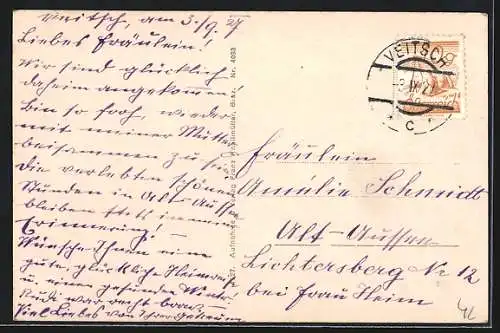 Veitsch, am 3./9. 27
Liebes Fräulein!
Wir sind glücklich
daheim angekommen!
Bin so froh, wieder
mit meiner Mutter
beisammen zu sein.
Die verlebten schönen
Stunden in Alt-Aussee
bleiben stets in mein
Erinnerung!
Wünsche Ihnen eine
gute, glückliche Heimreise
u. einen gesunden Winter!
Rudi war recht brav.
Viel Liebes von Ihrer
Nr. 4093
Aufnahme Verlag Franz
VEITSCH
IX 27
c
Fräulein
Amélie Schmidt
Alt-Aussee
Lichtersberg Nr 12
bei Frau Heim